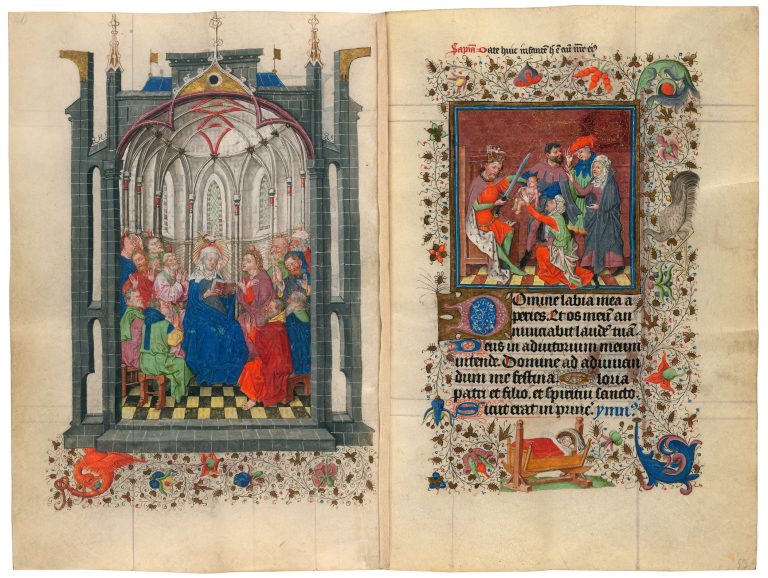 Date huic infantē
Domine labia mea a
peries. Et os meū an
nunciabit laudē tuā.
Deus in adiutorium meum
intende. Domine ad adiuuan
dum me festina. Gloria
patri et filio. et spiritui sancto.
Sicut erat in princ. ymn⁹